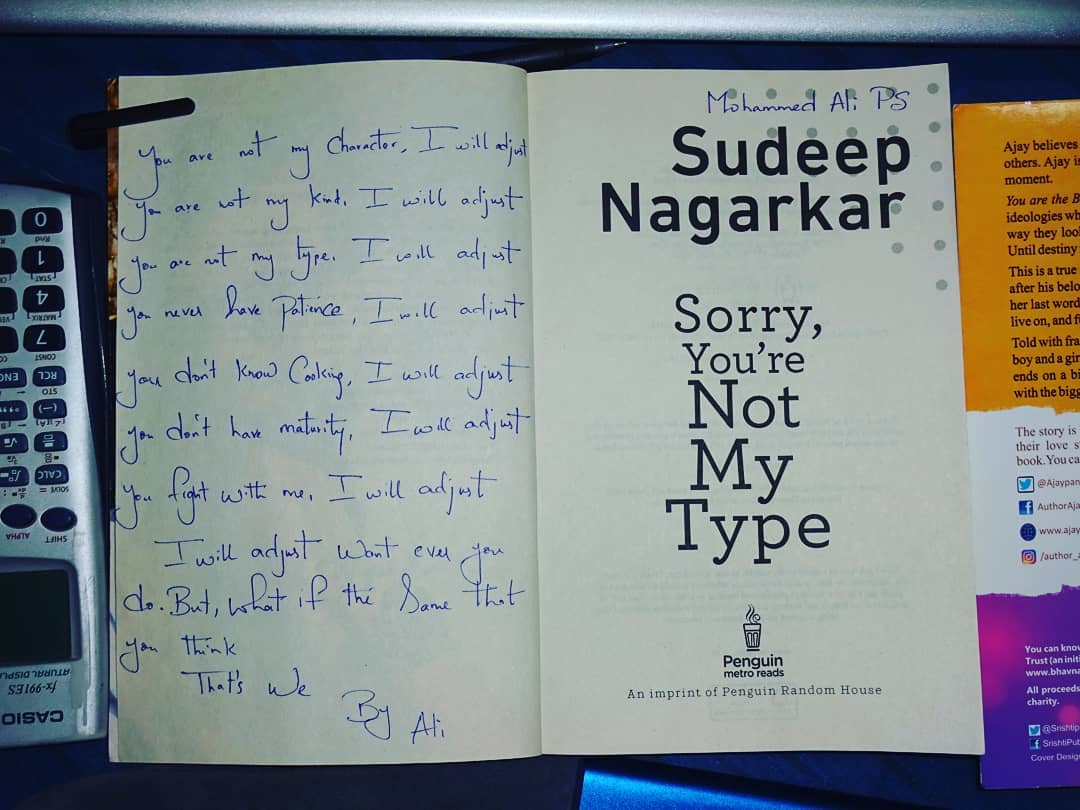 You are not my Character, I will adjust
You are not my kind. I will adjust
You are not my type. I will adjust
you never have Patience, I will adjust
you don't know Cooking, I will adjust
you don't have maturity, I will adjust
you fight with me. I will adjust
I will adjust What ever you
do. But, what if the Same that
you think
That's We
By Ali
Mohammed Ali PS
Sudeep
Nagarkar
Sorry,
You're
Not
My
Type
Penguin
metro reads
An imprint of Penguin Random House
Ajay believes
others. Ajay is
moment.
You are the B
ideologies wh
way they look
Until destiny
This is a true
after his belo
her last word
live on, and fu
Told with fra
boy and a gir
ends on a bi
with the bigg
The story is
their love s
book. You ca
@Ajaypan
AuthorAja
www.ajay
/author_a
You can know
Trust (an initi
www.bhavna
All proceeds
charity.
@Srishtip
SrishtiPub
Cover Design
0
Rnd
1
STAT
4
MATRIX
7
CONST
RCL
STO
ENG
(−)
CALC
SOLVE =
ALPHA
SHIFT
NATURAL DISPLAY
fx-991ES
CASIO